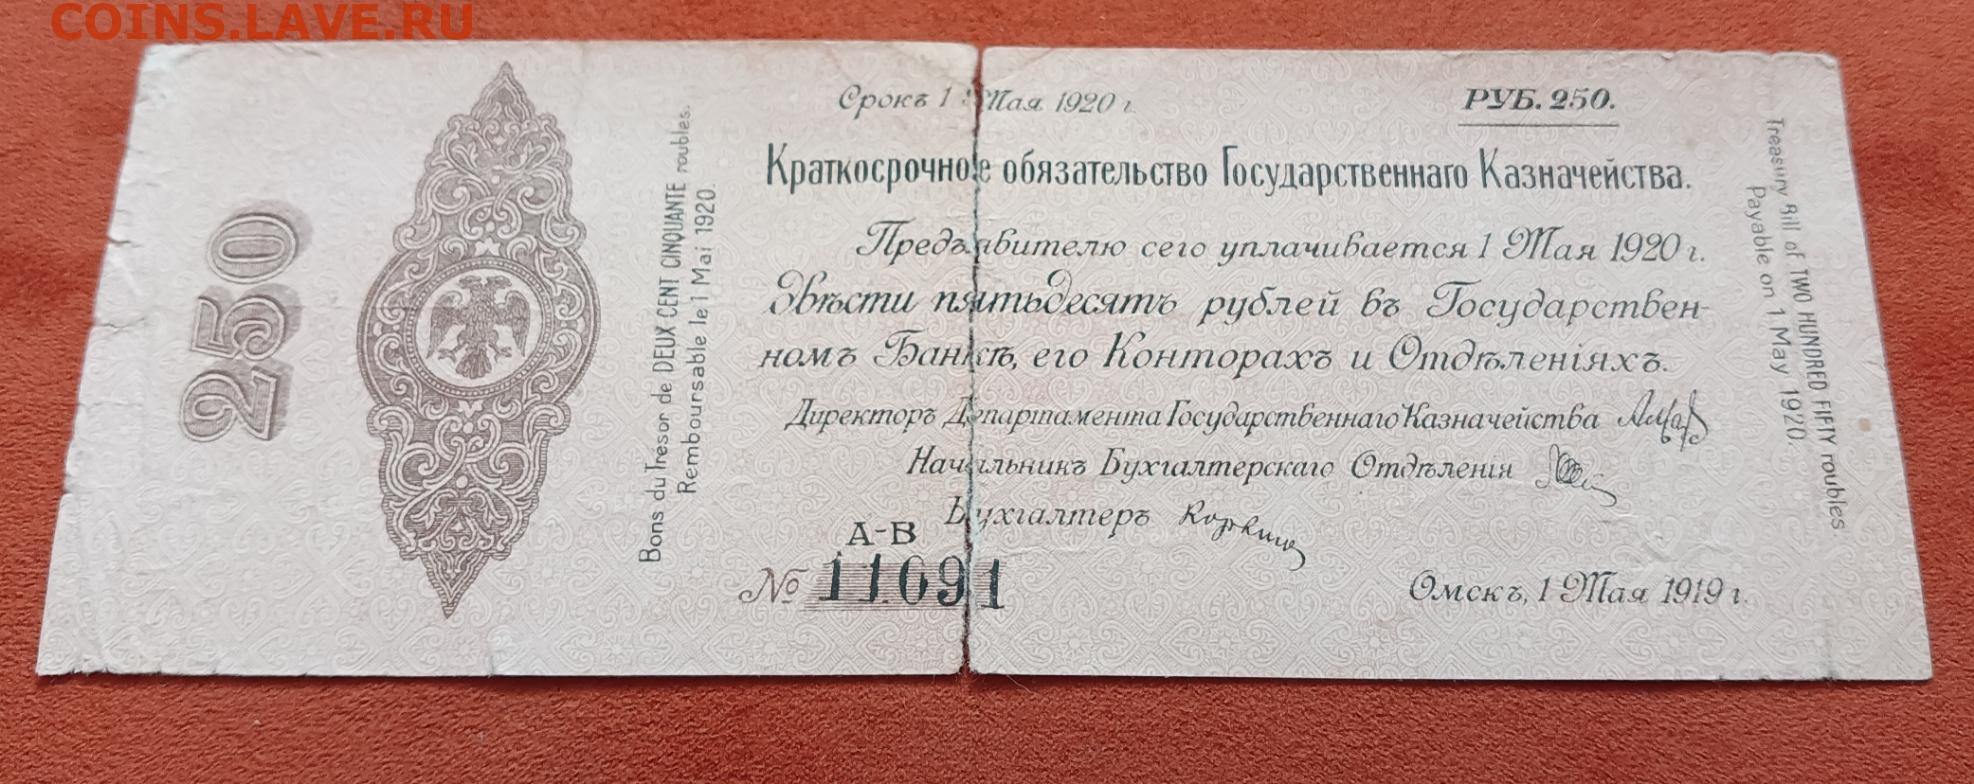 COINS.LAVE.RU
250
Bons du Trésor de DEUX CENT CINQUANTE roubles.
Remboursable le 1 Mai 1920.
Срокъ 1 Мая 1920 г.
РУБ. 250.
Краткосрочное обязательство Государственнаго Казначейства.
Предъявителю сего уплачивается 1 Мая 1920 г.
Двѣсти пятьдесятъ рублей въ Государствен-
номъ Банкѣ, его Конторахъ и Отдѣленіяхъ.
Директоръ Департамента Государственнаго Казначейства
Начальникъ Бухгалтерскаго Отдѣленія
Бухгалтеръ
А-В
№ 11091
Омскъ, 1 Мая 1919 г.
Treasury Bill of TWO HUNDRED FIFTY roubles.
Payable on 1 May 1920.